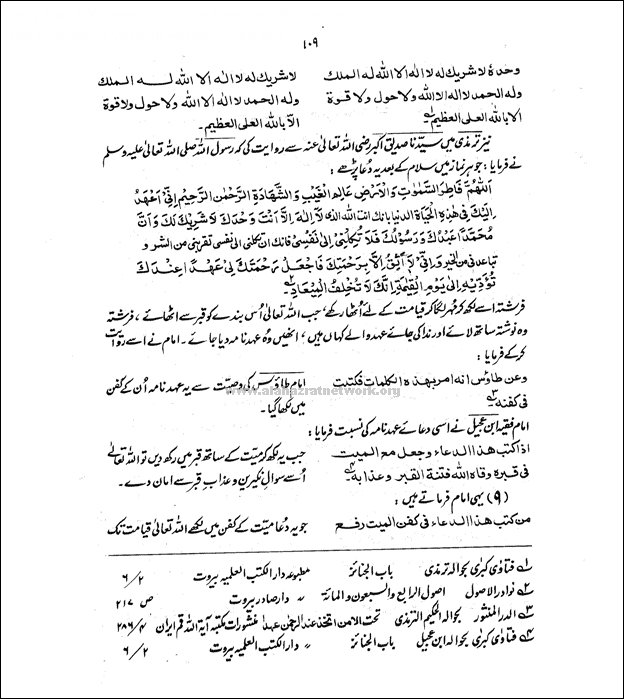 ١٠٩
وحدهٗ لاشریك له لا اله الا الله له الملك لاشریك له لا اله الا الله له الملك
وله الحمد لا اله الا الله ولا حول ولا قوة وله الحمد لا اله الا الله ولا حول ولا قوة
الا بالله العلی العظیم۔ الا بالله العلی العظیم۔
نیز ترمذی میں سیدنا صدیق اکبر رضی اللہ تعالیٰ عنہ سے روایت کی کہ رسول اللہ صلی اللہ تعالیٰ علیہ وسلم
نے فرمایا: جو ہر نماز میں سلام کے بعد یہ دُعا پڑھے:
اَللّٰهُمَّ فَاطِرَ السَّمٰوٰتِ وَالْاَرْضِ عَالِمَ الْغَیْبِ وَالشَّهَادَةِ الرَّحْمٰنَ الرَّحِیْمَ اِنِّیْ اَعْهَدُ
اِلَیْكَ فِیْ هٰذِهِ الْحَیَاةِ الدُّنْیَا بِانك انت الله الذی لَآ اِلٰهَ اِلَّا اَنْتَ وَحْدَكَ لَا شَرِیْكَ لَكَ وَاَنَّ
مُحَمَّدًا عَبْدُكَ وَرَسُوْلُكَ فَلَا تَكِلْنِیْ اِلٰی نَفْسِیْ فانك ان تكلنی الی نفسی تقربنی من الشر و
تباعدنی من الخیر وَاِنِّیْ لَآ اَثِقُ اِلَّا بِرَحْمَتِكَ فَاجْعَلْ رَحْمَتَكَ لِیْ عَهْدًا عِنْدَكَ
تُؤَدِّیْهِ اِلٰی یَوْمِ الْقِیٰمَةِ اِنَّكَ لَا تُخْلِفُ الْمِیْعَادَ۔
فرشتہ اسے لکھ کر مُہر لگا کر قیامت کے لئے اُٹھا رکھے، جب اللہ تعالیٰ اُس بندے کو قبر سے اٹھائے، فرشتہ
وہ نوشتہ ساتھ لائے اور ندا کی جائے عہد والے کہاں ہیں، انھیں وُہ عہد نامہ دیا جائے۔ امام نے اسے روایت
کر کے فرمایا:
وعن طاؤس انه امر بهذه الکلمات فکتبت امام طاؤس کی وصیت سے یہ عہد نامہ اُن کے کفن
www.alahazratnetwork.org
فی کفنه۳۔ میں لکھا گیا۔
امام فقیہ ابن عجیل نے اسی دعائے عہد نامہ کی نسبت فرمایا:
اذا کتب هذا الدعاء وجعل مع المیت جب یہ لکھ کر میّت کے ساتھ قبر میں رکھ دیں تو اللہ تعالیٰ
فی قبره وقاه الله فتنة القبر وعذابه۴۔ اُسے سوالِ نکیرین وعذابِ قبر سے امان دے۔
(۹) یہی امام فرماتے ہیں:
من کتب هذا الدعاء فی کفن المیت رفع جو یہ دُعا میّت کے کفن میں لکھے اللہ تعالیٰ قیامت تک
۱؎ فتاوٰی کبرٰی بحوالہ ترمذی باب الجنائز مطبوعہ دار الکتب العلمیہ بیروت ۲/۶
۲؎ نوادر الاصول اصول الرابع والسبعون والمائة 〃 دار صادر بیروت ص ۲۱۷
۳؎ الدر المنثور بحوالہ الحکیم الترمذی تحت الامن اتخذ عند الرحمٰن عہدا منشورات مکتبہ آیۃ اللہ قم ایران ۴/۲۸۶
۴؎ فتاوٰی کبرٰی بحوالہ ابن عجیل باب الجنائز 〃 دار الکتب العلمیہ بیروت ۲/۶